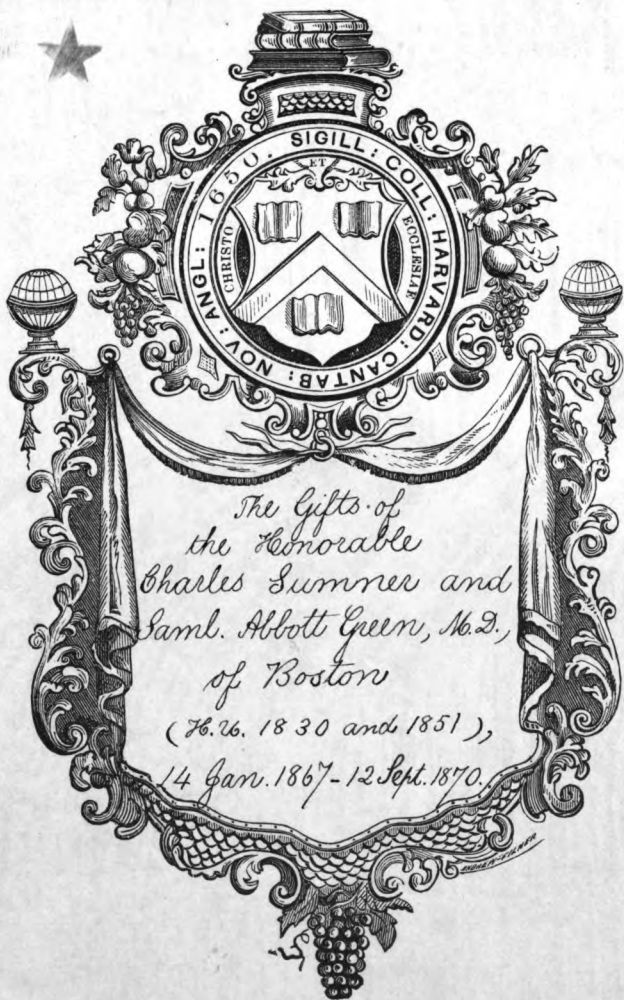 SIGILL: COLL: HARVARD: CANTAB: NOV: ANGL: 1650.
ET
CHRISTO
ECCLESIAE
The Gifts of
the Honorable
Charles Sumner and
Saml. Abbott Green, M.D.,
of Boston
(H.U. 1830 and 1851),
14 Jan. 1867-12 Sept. 1870.